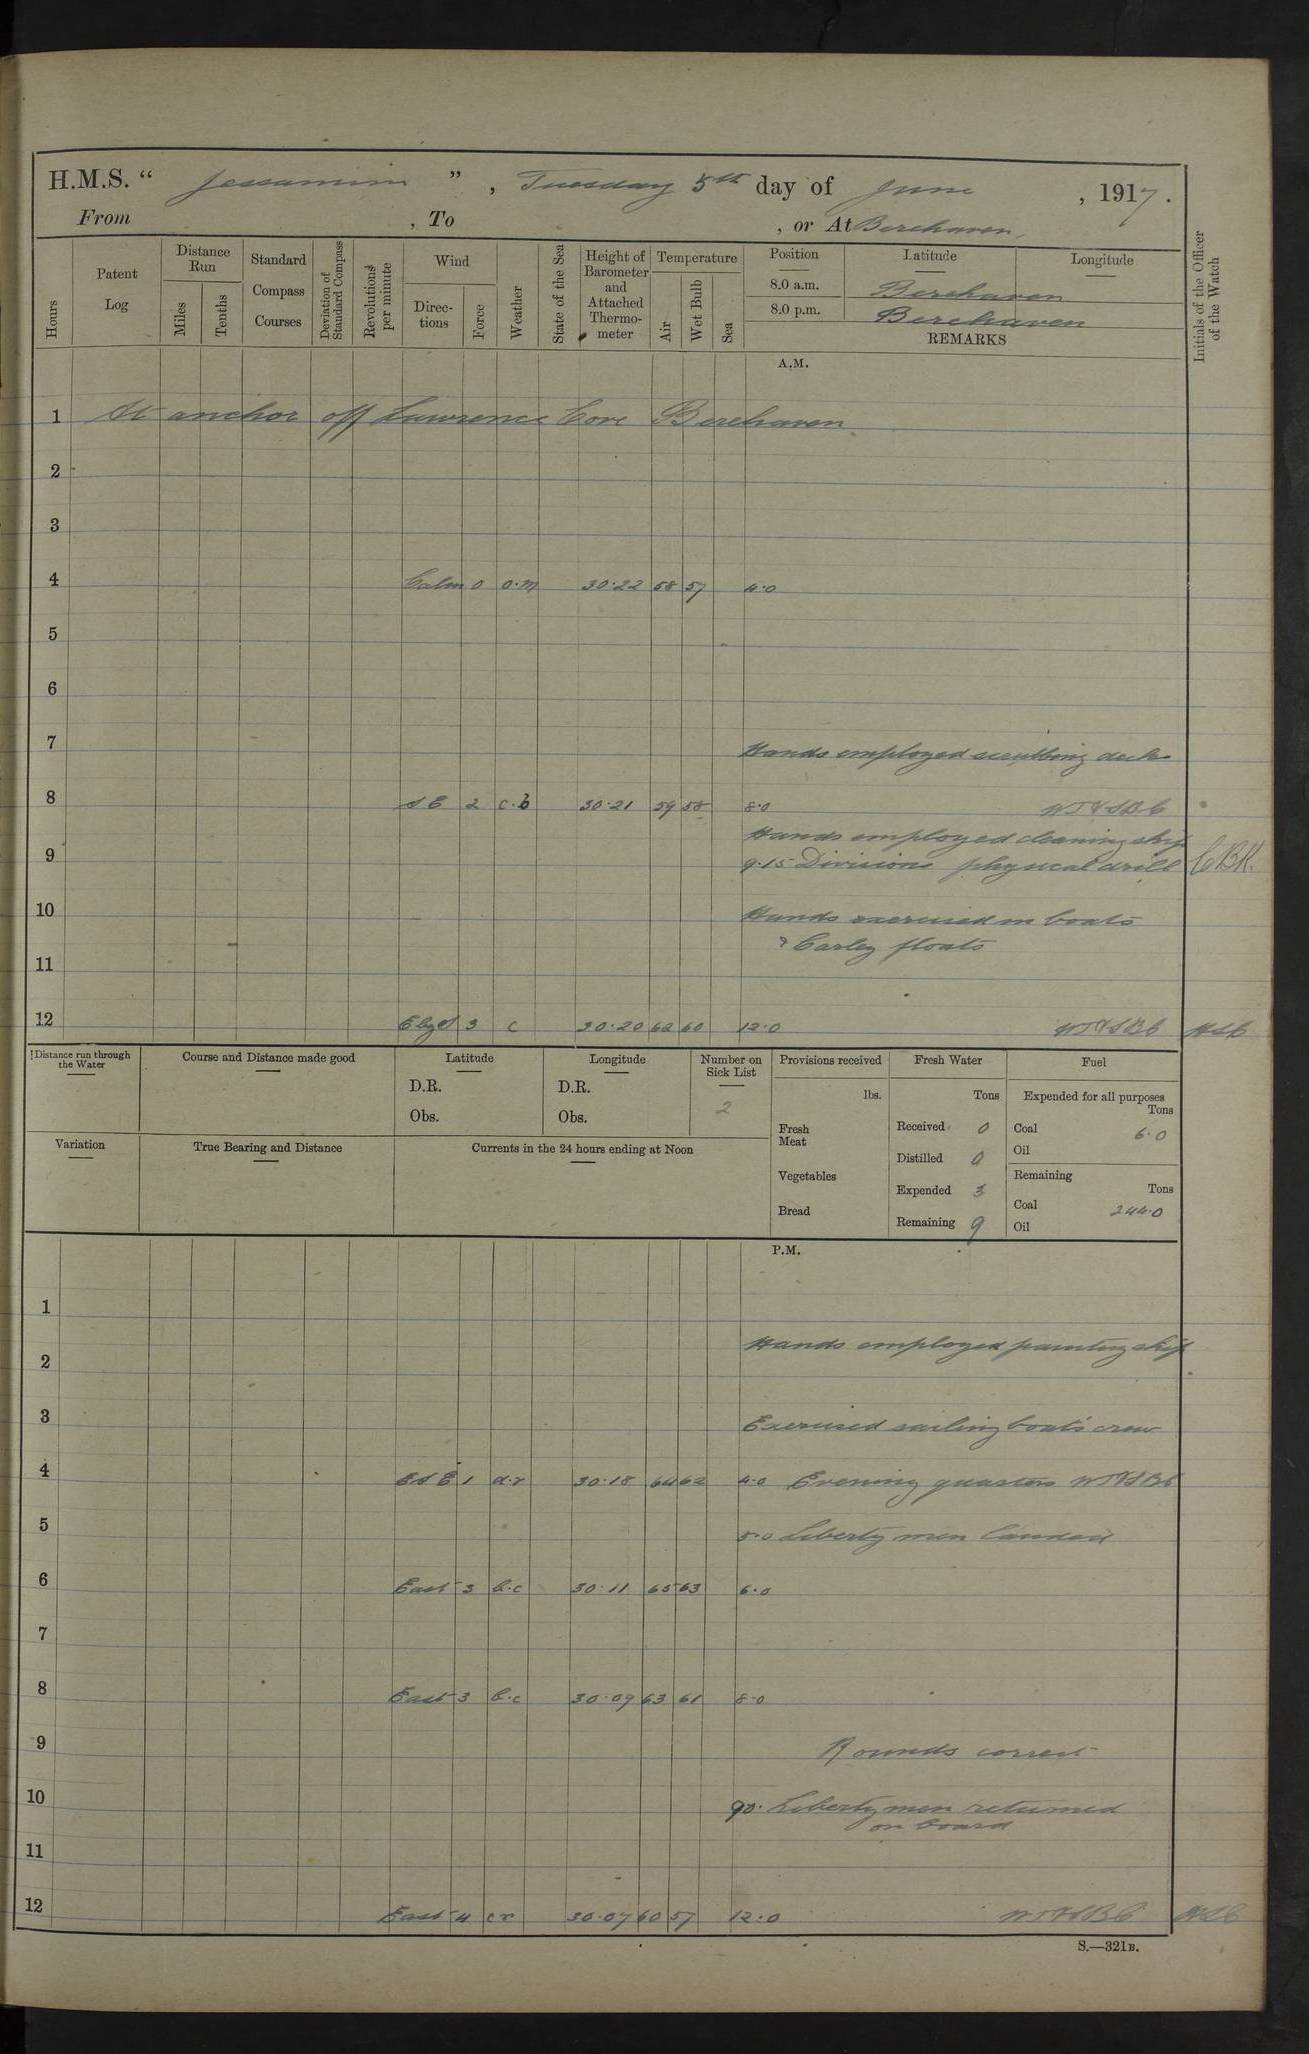 H.M.S. “ Jessamine ” , Tuesday 5th day of June , 1917.
From , To , or At Berehaven.
Hours
Patent Log
Distance Run
Miles
Tenths
Standard Compass Courses
Deviation of Standard Compass
Revolutions per minute
Wind
Directions
Force
Weather
State of the Sea
Height of Barometer and Attached Thermometer
Temperature
Air
Wet Bulb
Sea
Position Latitude Longitude
8.0 a.m. Berehaven
8.0 p.m. Berehaven
REMARKS
Initials of the Officer of the Watch
A.M.
1 At anchor off Lawrence Cove Berehaven
2
3
4 Calm 0 o.m 30.22 58 57 4.0
5
6
7 Hands employed scrubbing decks
8 S E 2 c.b 30.21 59 58 8.0
Hands employed cleaning ship
9 9.15 Divisions physical drill
10 Hands exercised in boats
& Carley floats
11
12 E by S 3 c 30.20 62 60 12.0
Distance run through the Water
Course and Distance made good
Latitude
D.R.
Obs.
Longitude
D.R.
Obs.
Number on Sick List
2
Provisions received
lbs.
Fresh Meat
Vegetables
Bread
Fresh Water
Tons
Received 0
Distilled 0
Expended 3
Remaining 9
Fuel
Expended for all purposes
Tons
Coal 6.0
Oil
Remaining
Tons
Coal 244.0
Oil
Variation
True Bearing and Distance
Currents in the 24 hours ending at Noon
P.M.
1
2 Hands employed painting ship
3 Exercised sailing boats crew
4 E S E 1 d.r 30.18 64 62 4.0 Evening quarters
5 5.0 Liberty men landed
6 East 3 b.c 30.11 65 63 6.0
7
8 East 3 b.c 30.09 63 61 8.0
9 Rounds correct
10 9.0. Liberty men returned
on board
11
12 East 4 c r 30.07 60 57 12.0
S.—321B.